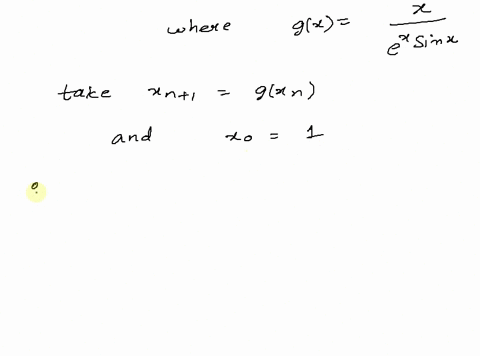 where g(x) = x / e^x Sin x
take x_{n+1} = g(x_n)
and x_0 = 1